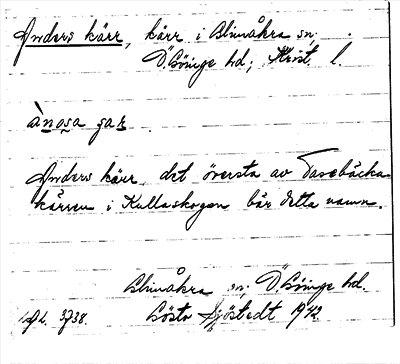 Anders kärr, kärr i Glimåkra sn,
Ö. Göinge hd, Krist. l.
ànosa çar
Anders kärr, det översta av Tavebäcka
kärren i Kullaskogen bär detta namn.
Glimåkra sn. Ö. Göinge hd.
3738. Gösta Sjöstedt 1942